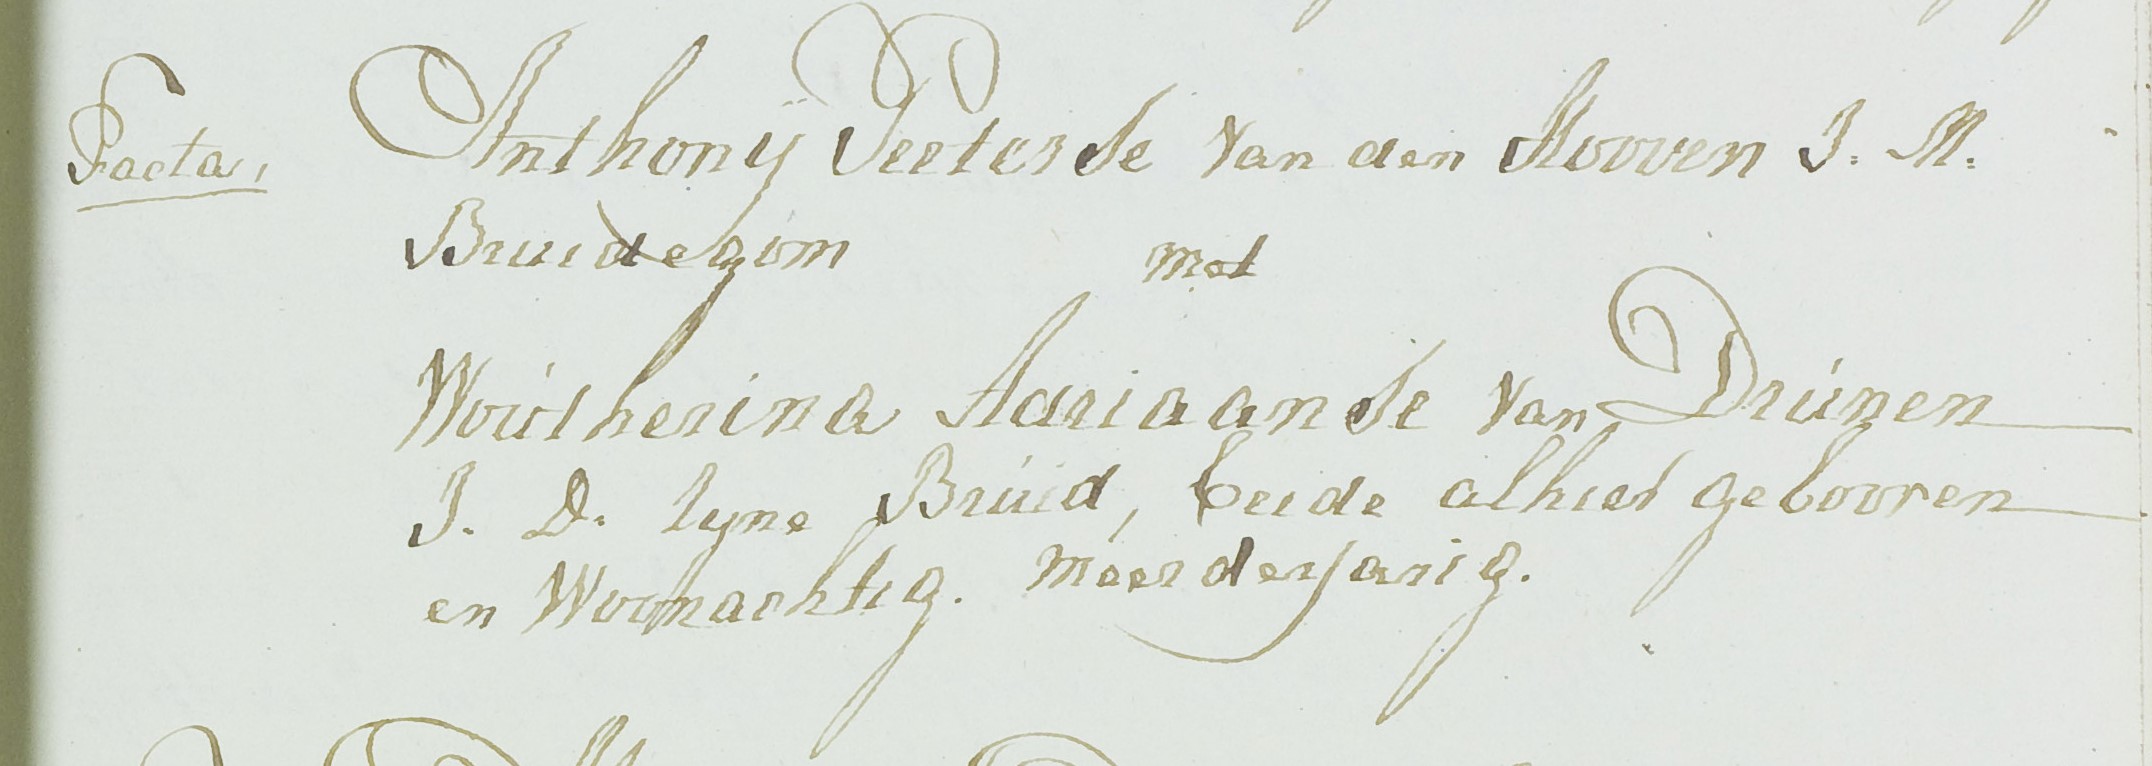 Facta,
Anthonij Peeterse van den Hooven J: M:
Bruidegom met
Woutherina Adriaanse van Drúnen
J. D. Zyne Brúid, beide alhier gebooren
en Woonachtig. meerderjarig.